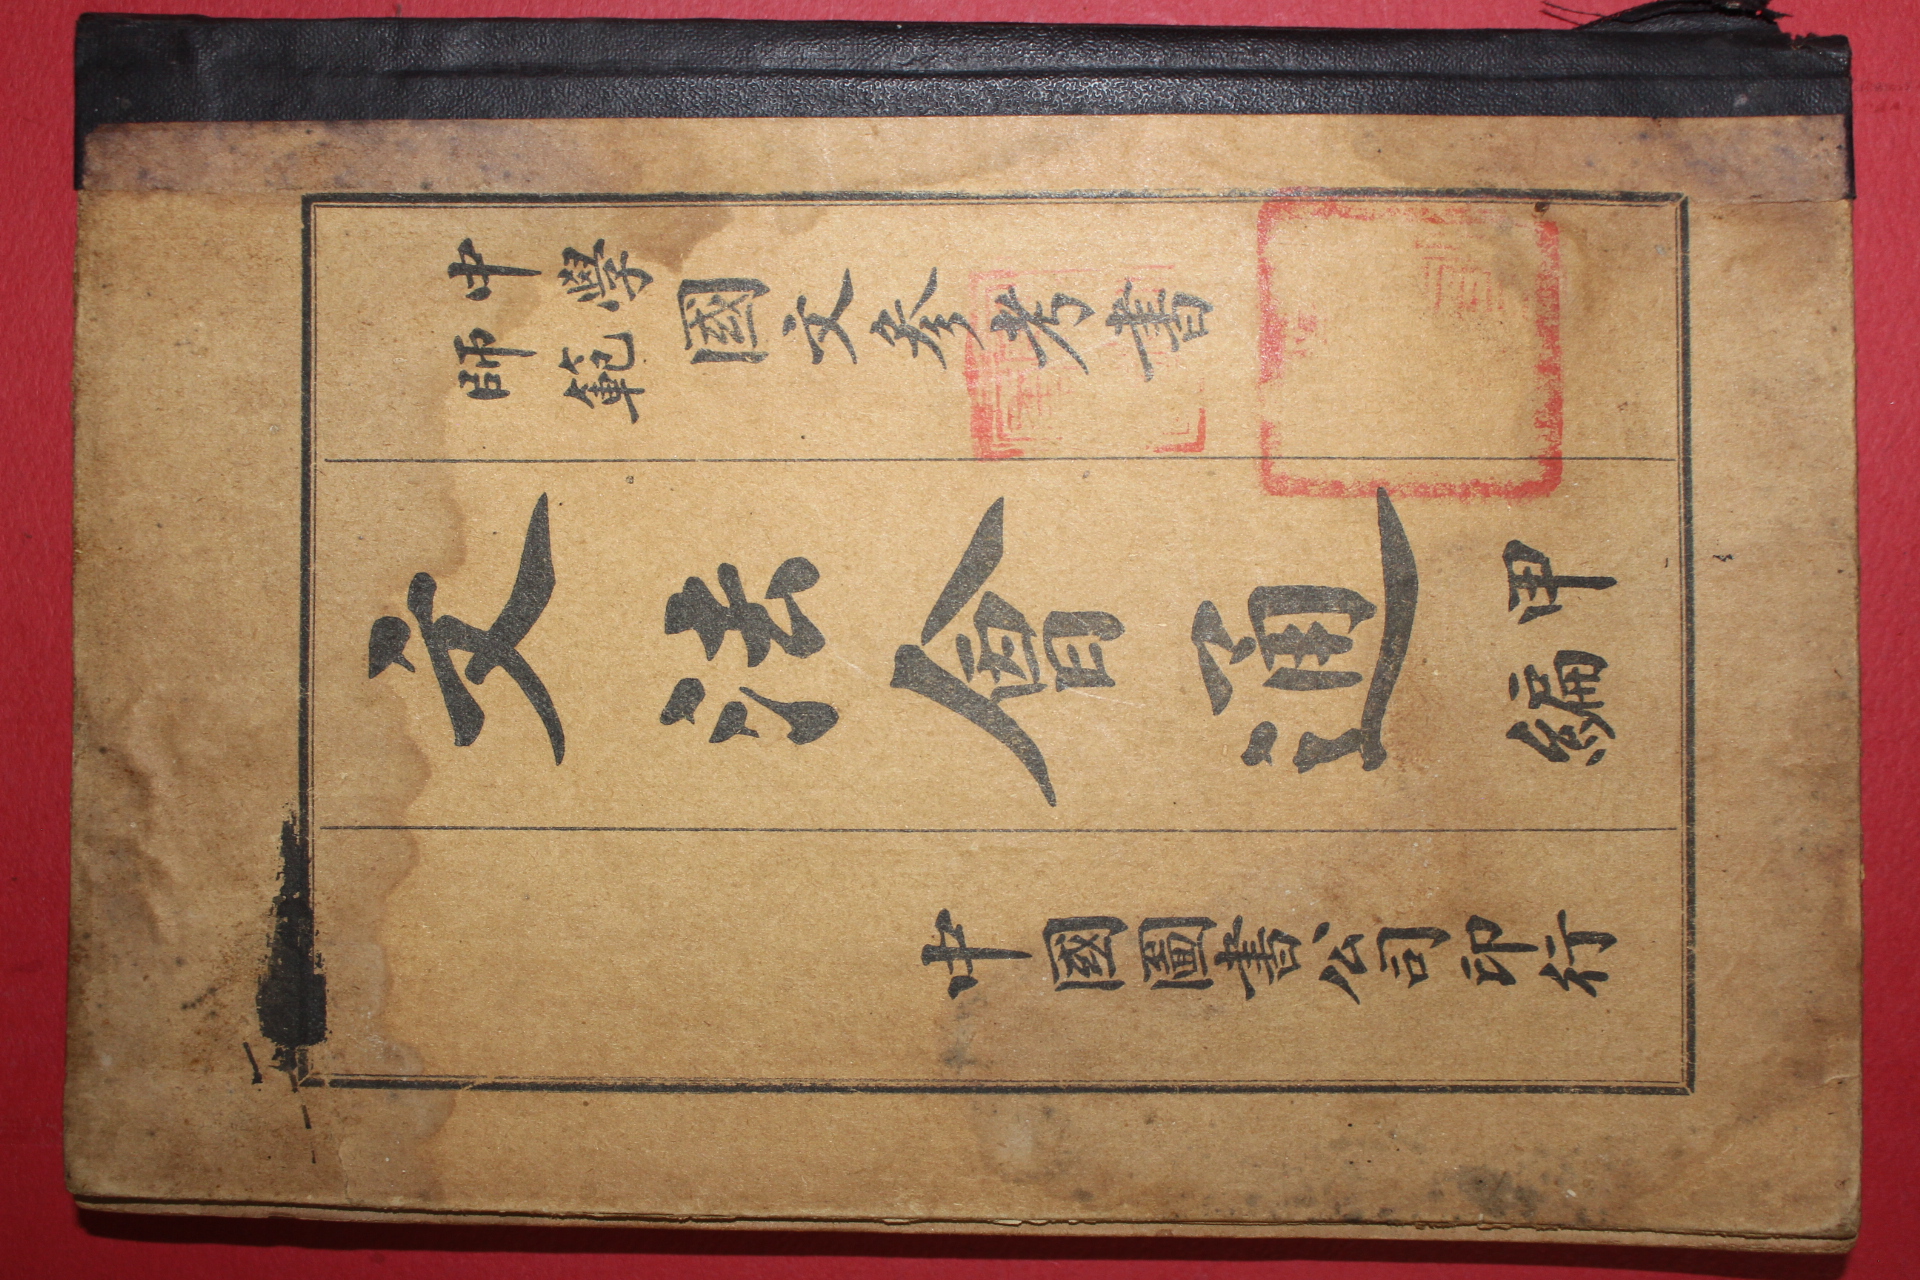 中學師範國文參考書
文法會通 甲編
中國圖書公司印行